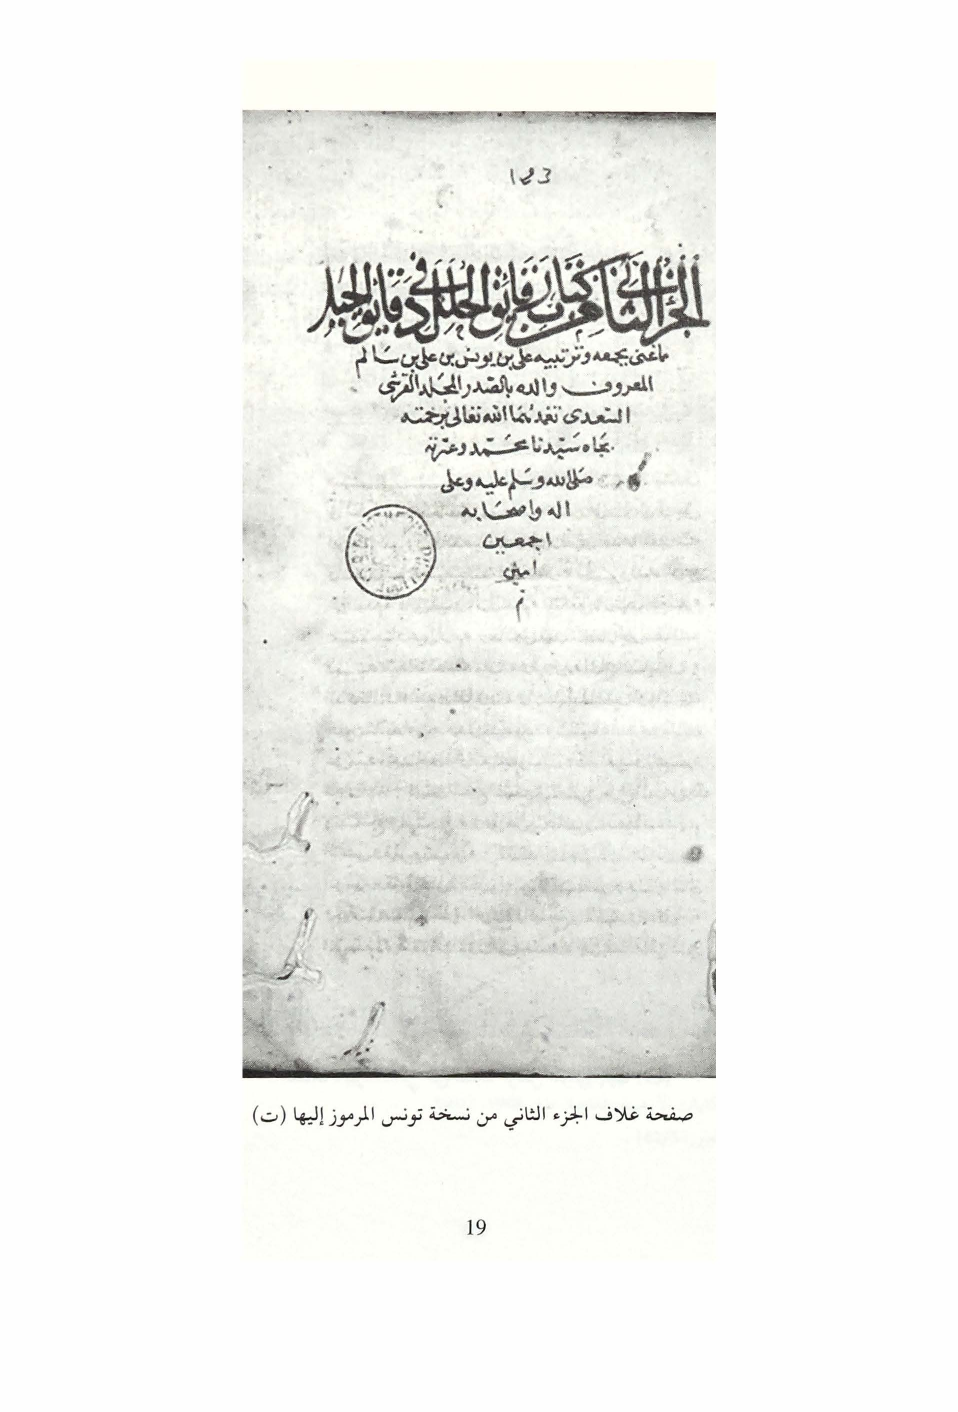 193
الجزء الثاني من كتاب رقايق الحلل في دقايق الحيل
ما عنى بجمعه وترتيبه على بن يونس بن على بن سالم
المعروف والده بالصدر المجلد القرشى
السعدى تغمدهما الله تعالى برحمته
بجاه سيدنا محمد وعترته
صلى الله وسلم عليه وعلى
اله واصحابه
اجمعين
امين
م
صفحة غلاف الجزء الثاني من نسخة تونس المرموز إليها (ت)
19